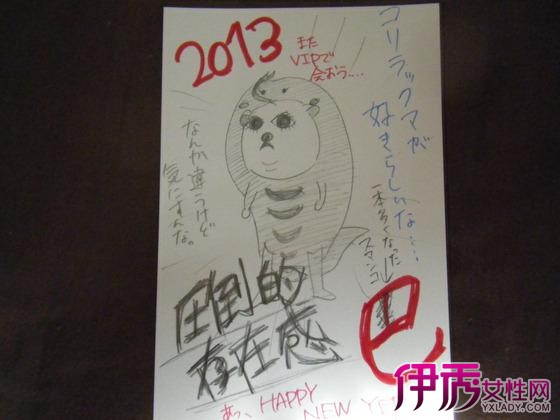 2013
また
VIPで
会おう....
コリラックマが
好きらしいな....
一本多くなった
スマンコ
なんか違うけど
気にすんな。
圧倒的
存在感
巳
あっ、HAPPY
NEW YE
伊秀女性网
YXLADY.COM